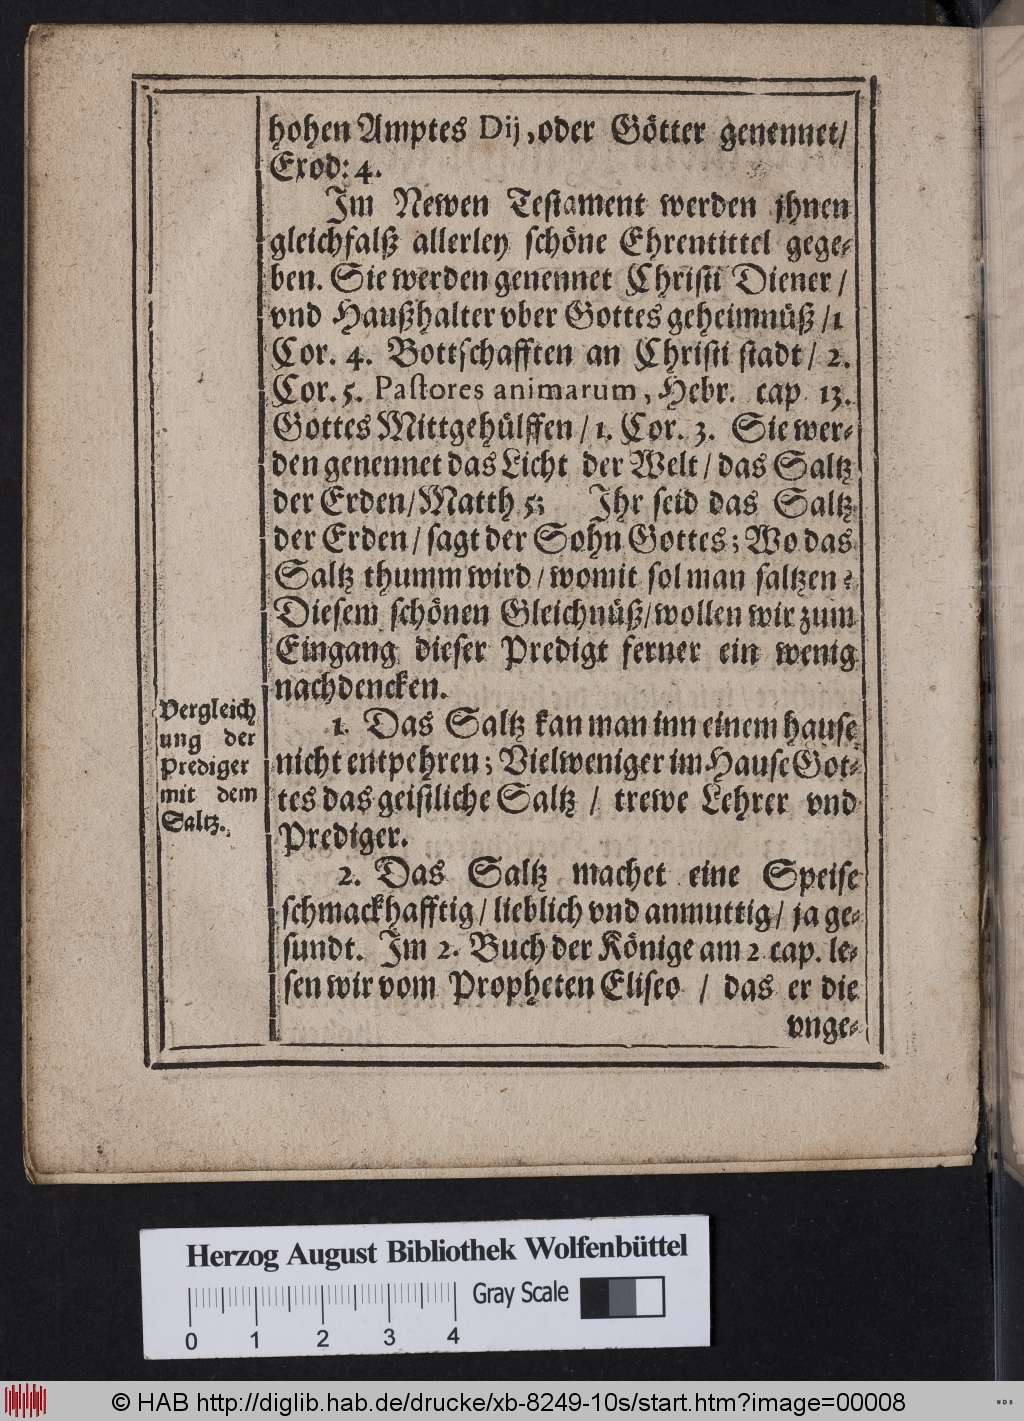 hohen Amptes Dij, oder Götter genennet/
Exod: 4.
Im Newen Testament werden jhnen
gleichfalß allerley schöne Ehrentittel gege-
ben. Sie werden genennet Christi Diener /
vnd Haußhalter vber Gottes geheimnüß / 1
Cor. 4. Bottschafften an Christi stadt / 2.
Cor. 5. Pastores animarum, Hebr. cap 13.
Gottes Mittgehülffen / 1. Cor. 3. Sie wer-
den genennet das Licht der Welt / das Saltz
der Erden/ Matth 5; Ihr seid das Saltz
der Erden / sagt der Sohn Gottes; Wo das
Saltz thumm wird / womit sol man saltzen?
Diesem schönen Gleichnüß/ wollen wir zum
Eingang dieser Predigt ferner ein wenig
nachdencken.
Vergleich
ung der
Prediger
mit dem
Saltz.
1. Das Saltz kan man inn einem hause
nicht entpehren; Vielweniger im Hause Got-
tes das geistliche Saltz / trewe Lehrer vnd
Prediger.
2. Das Saltz machet eine Speise
schmackhafftig / lieblich vnd anmuttig / ja ge-
sundt. Im 2. Buch der Könige am 2 cap. le-
sen wir vom Propheten Eliseo / das er die
vnge-
Herzog August Bibliothek Wolfenbüttel
Gray Scale
0 1 2 3 4
© HAB http://diglib.hab.de/drucke/xb-8249-10s/start.htm?image=00008